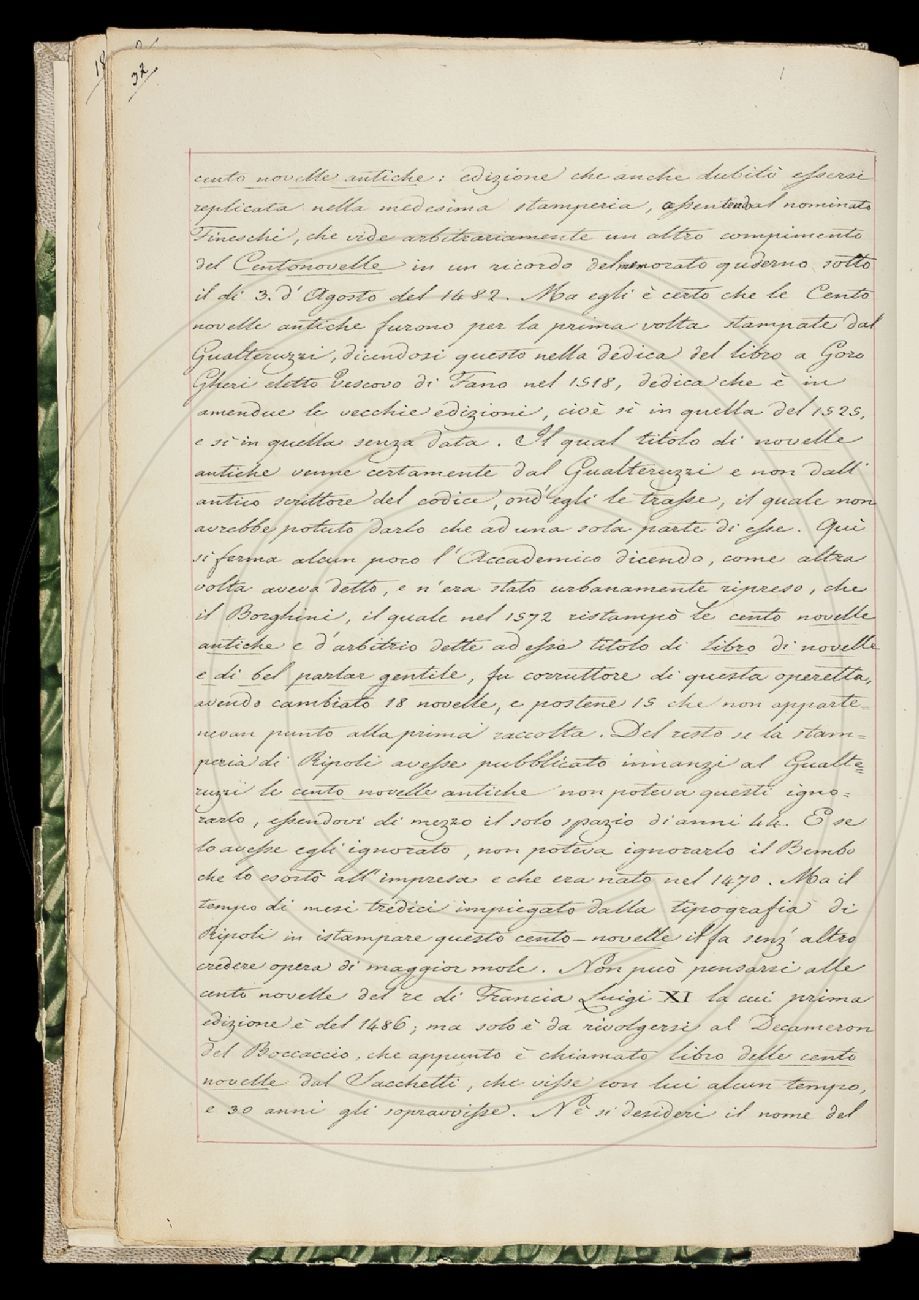 32
cento novelle antiche: edizione che anche dubitò essersi
replicata nella medesima stamperia, nominato
Fineschi, che vide arbitrariamente un altro compimento
del Centonovelle in un ricordo del memorato quderno sotto
il dì 3. d'Agosto del 1482. Ma egli è certo che le Cento
novelle antiche furono per la prima volta stampate dal
Gualteruzzi, dicendosi questo nella dedica del libro a Goro
Gheri eletto Vescovo di Fano nel 1518, dedica che è in
amendue le vecchie edizioni, cioè sì in quella del 1525,
e sì in quella senza data. Il qual titolo di novelle
antiche venne certamente dal Gualteruzzi e non dall'
antico scrittore del codice, ond'egli le trasse, il quale non
avrebbe potuto darlo che ad una sola parte di esse. Quì
si ferma alcun poco l'Accademico dicendo, come altra
volta aveva detto, e n'era stato urbanamente ripreso, che
il Borghini, il quale nel 1572 ristampò le cento novelle
antiche e d'arbitrio dette ad esse titolo di libro di novelle
e di bel parlar gentile, fu corruttore di questa operetta,
avendo cambiato 18 novelle, e postene 15 che non apparte=
nevan punto alla prima raccolta. Del resto se la stam=
peria di Ripoli avesse pubblicato innanzi al Gualte=
ruzzi le cento novelle antiche non poteva questi igno=
rarlo, essendovi di mezzo il solo spazio di anni 44. E se
lo avesse egli ignorato, non poteva ignorarlo il Bembo
che lo esortò all'impresa e che era nato nel 1470. Ma il
tempo di mesi tredici impiegato dalla tipografia di
Ripoli in istampare questo cento-novelle il fa senz'altro
credere opera di maggior mole. Non può pensarsi alle
cento novelle del re di Francia Luigi XI la cui prima
edizione è del 1486; ma solo è da rivolgersi al Decameron
del Boccaccio, che appunto è chiamato libro delle cento
novelle dal Sacchetti, che visse con lui alcun tempo,
e 30 anni gli sopravvisse. Nè si desideri il nome del